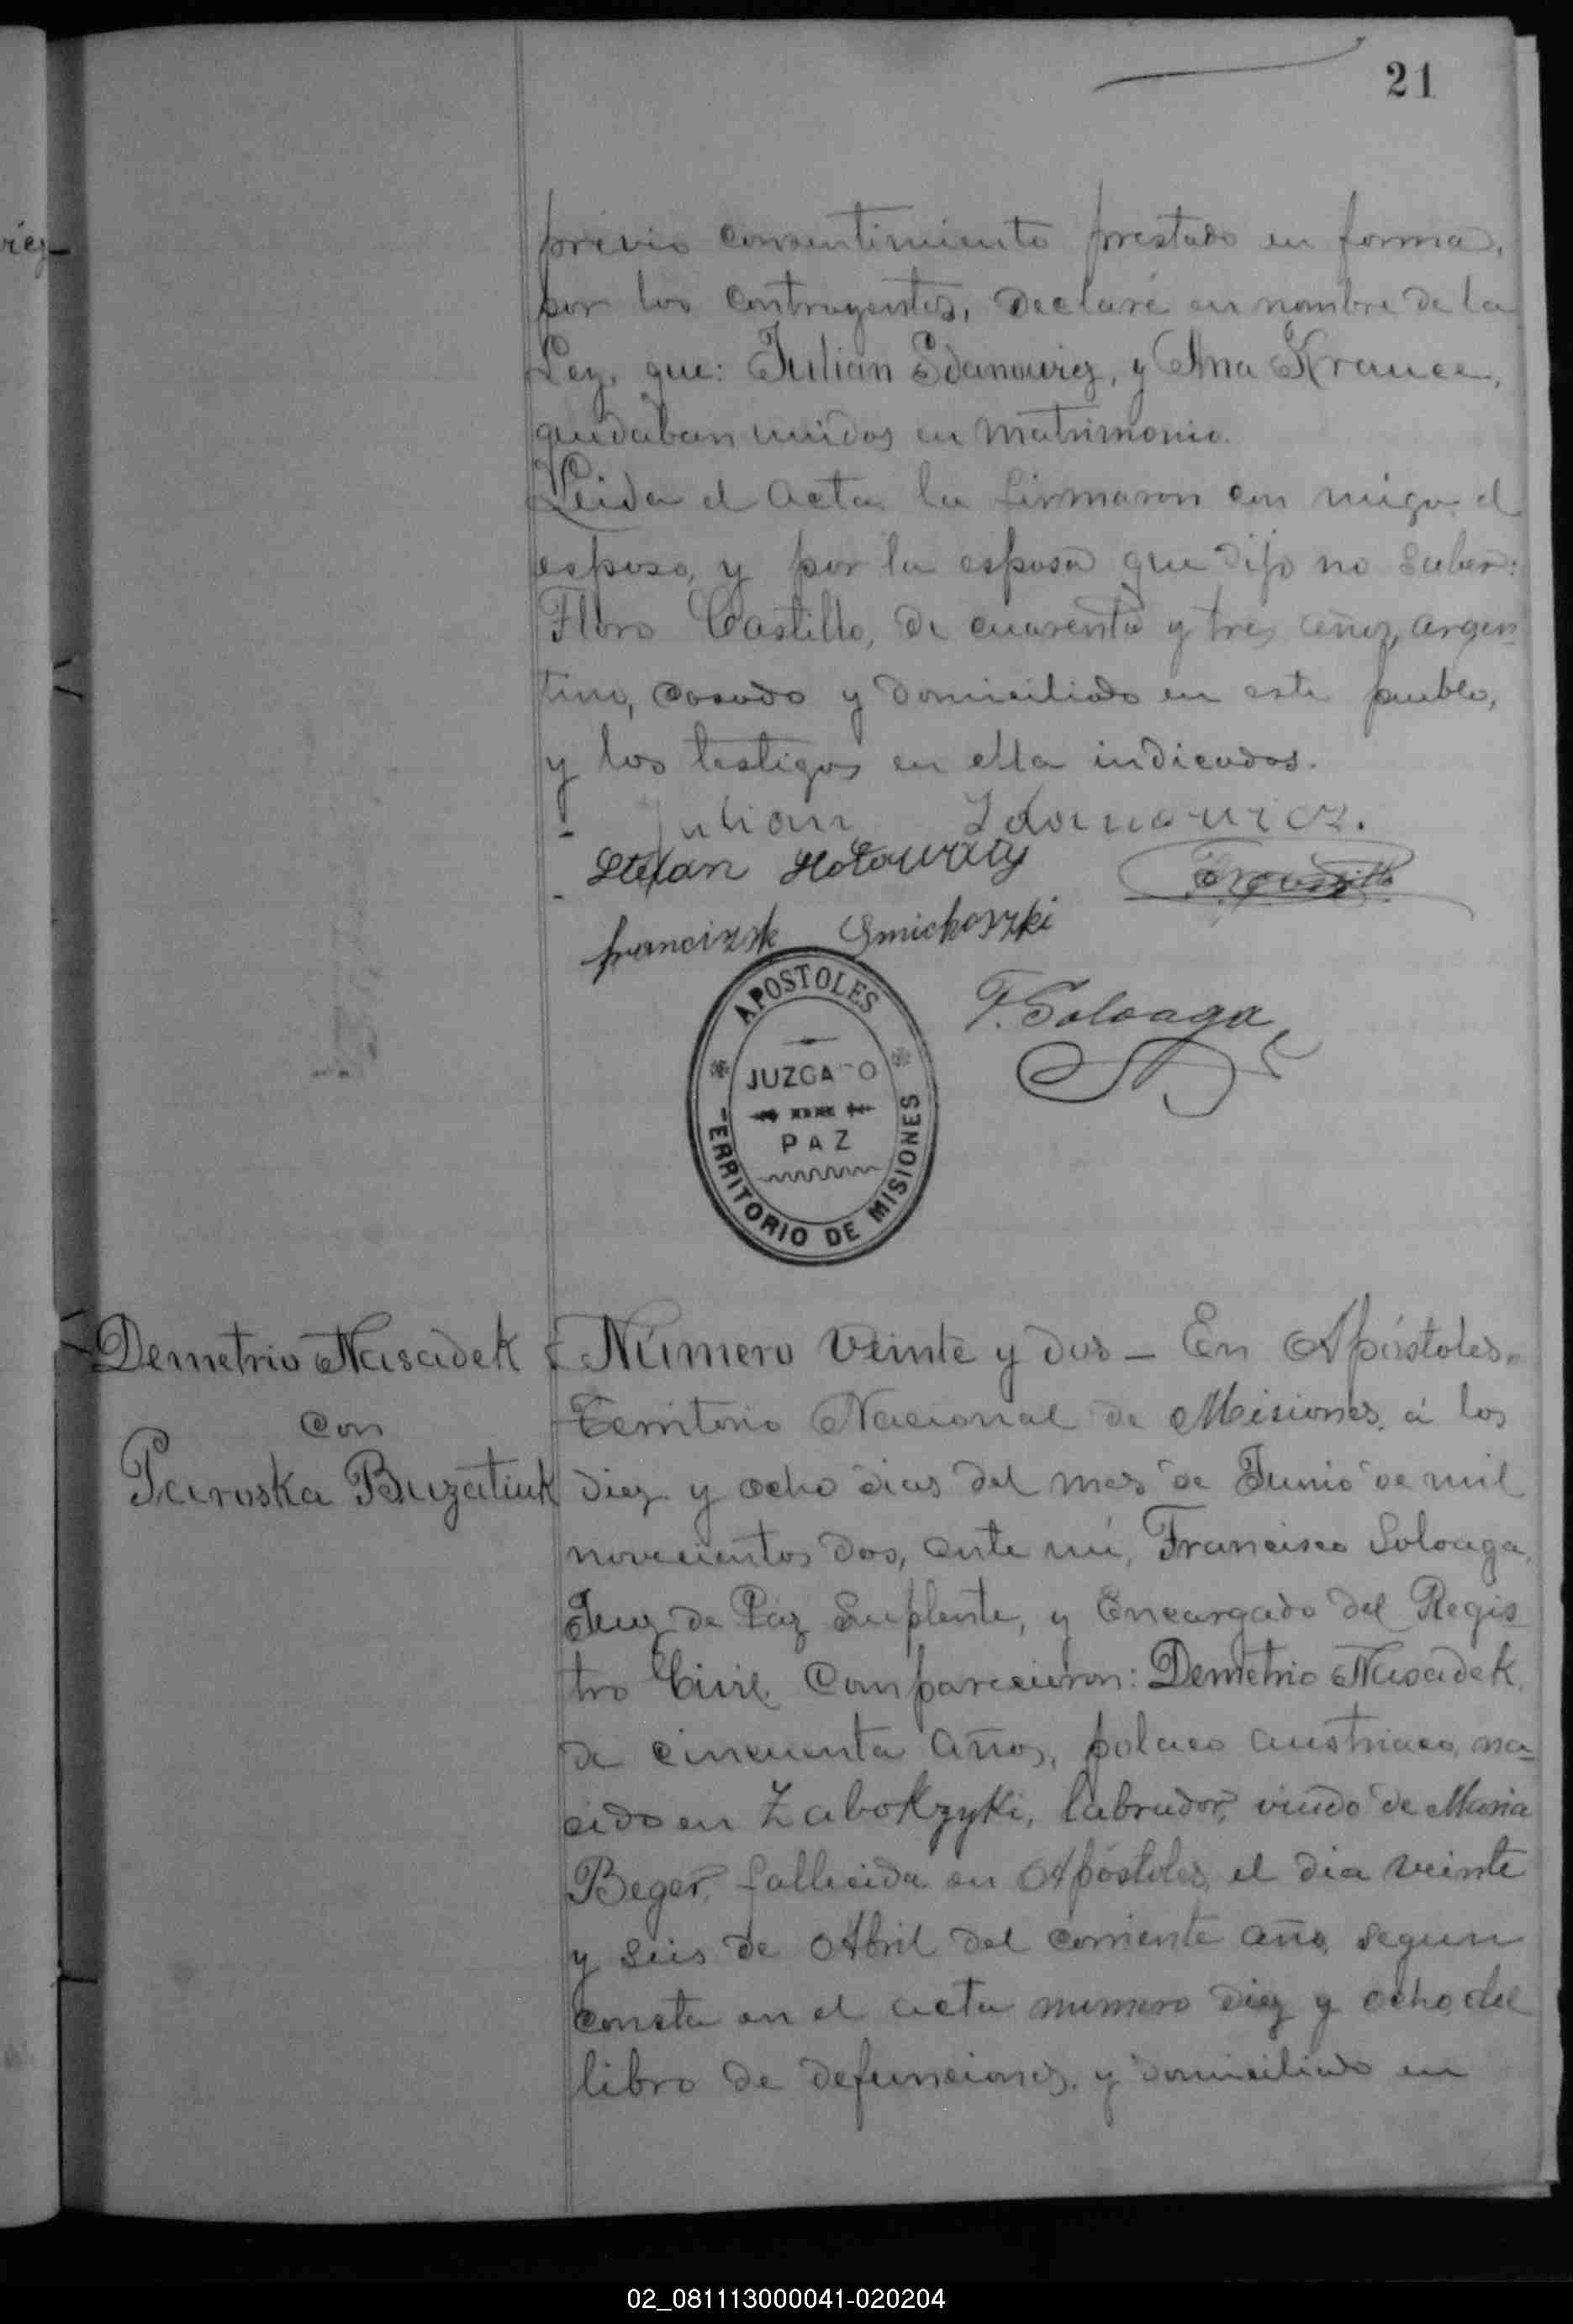 21
previo consentimiento prestado en forma,
por los contrayentes, declaré en nombre de la
Ley, que: Julian Sdanowiez, y Ana Krauce,
quedaban unidos en matrimonio.
Leida el acta la firmaron con migo el
esposo, y por la esposa que dijo no saber:
Floro Castillo, de cuarenta y tres años, argen
tino, casado y domiciliado en este pueblo,
y los testigos en ella indicados.
Julian Zdanowicz.
Stefan Hotowaty
francizsk Gmichoszki
F. Soloaga
APOSTOLES
JUZGADO
PAZ
TERRITORIO DE MISIONES
Demetrio Nasadek
con
Paroska Buzatiuk
Número veinte y dos - En Apóstoles,
Territorio Nacional de Misiones, á los
diez y ocho dias del mes de Junio de mil
novecientos dos, ante mi, Francisco Soloaga,
Juez de Paz Suplente, y Encargado del Regis
tro Civil. Comparecieron: Demetrio Nasadek,
de cincuenta años, polaco austriaco, na=
cido en Zabokzyki, labrador, viudo de Maria
Beger, fallecida en Apóstoles, el dia veinte
y seis de Abril del corriente año, segun
consta en el acta numero diez y ocho, del
libro de defunciones, y domiciliado en
02_081113000041-020204